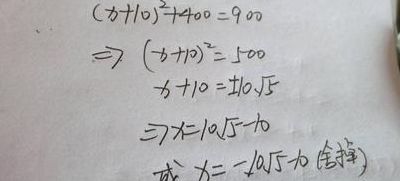 (x+10)²+400=900
⇒ (x+10)²=500
x+10=±10√5
⇒x=10√5-10
或 x=-10√5-10 (舍掉)